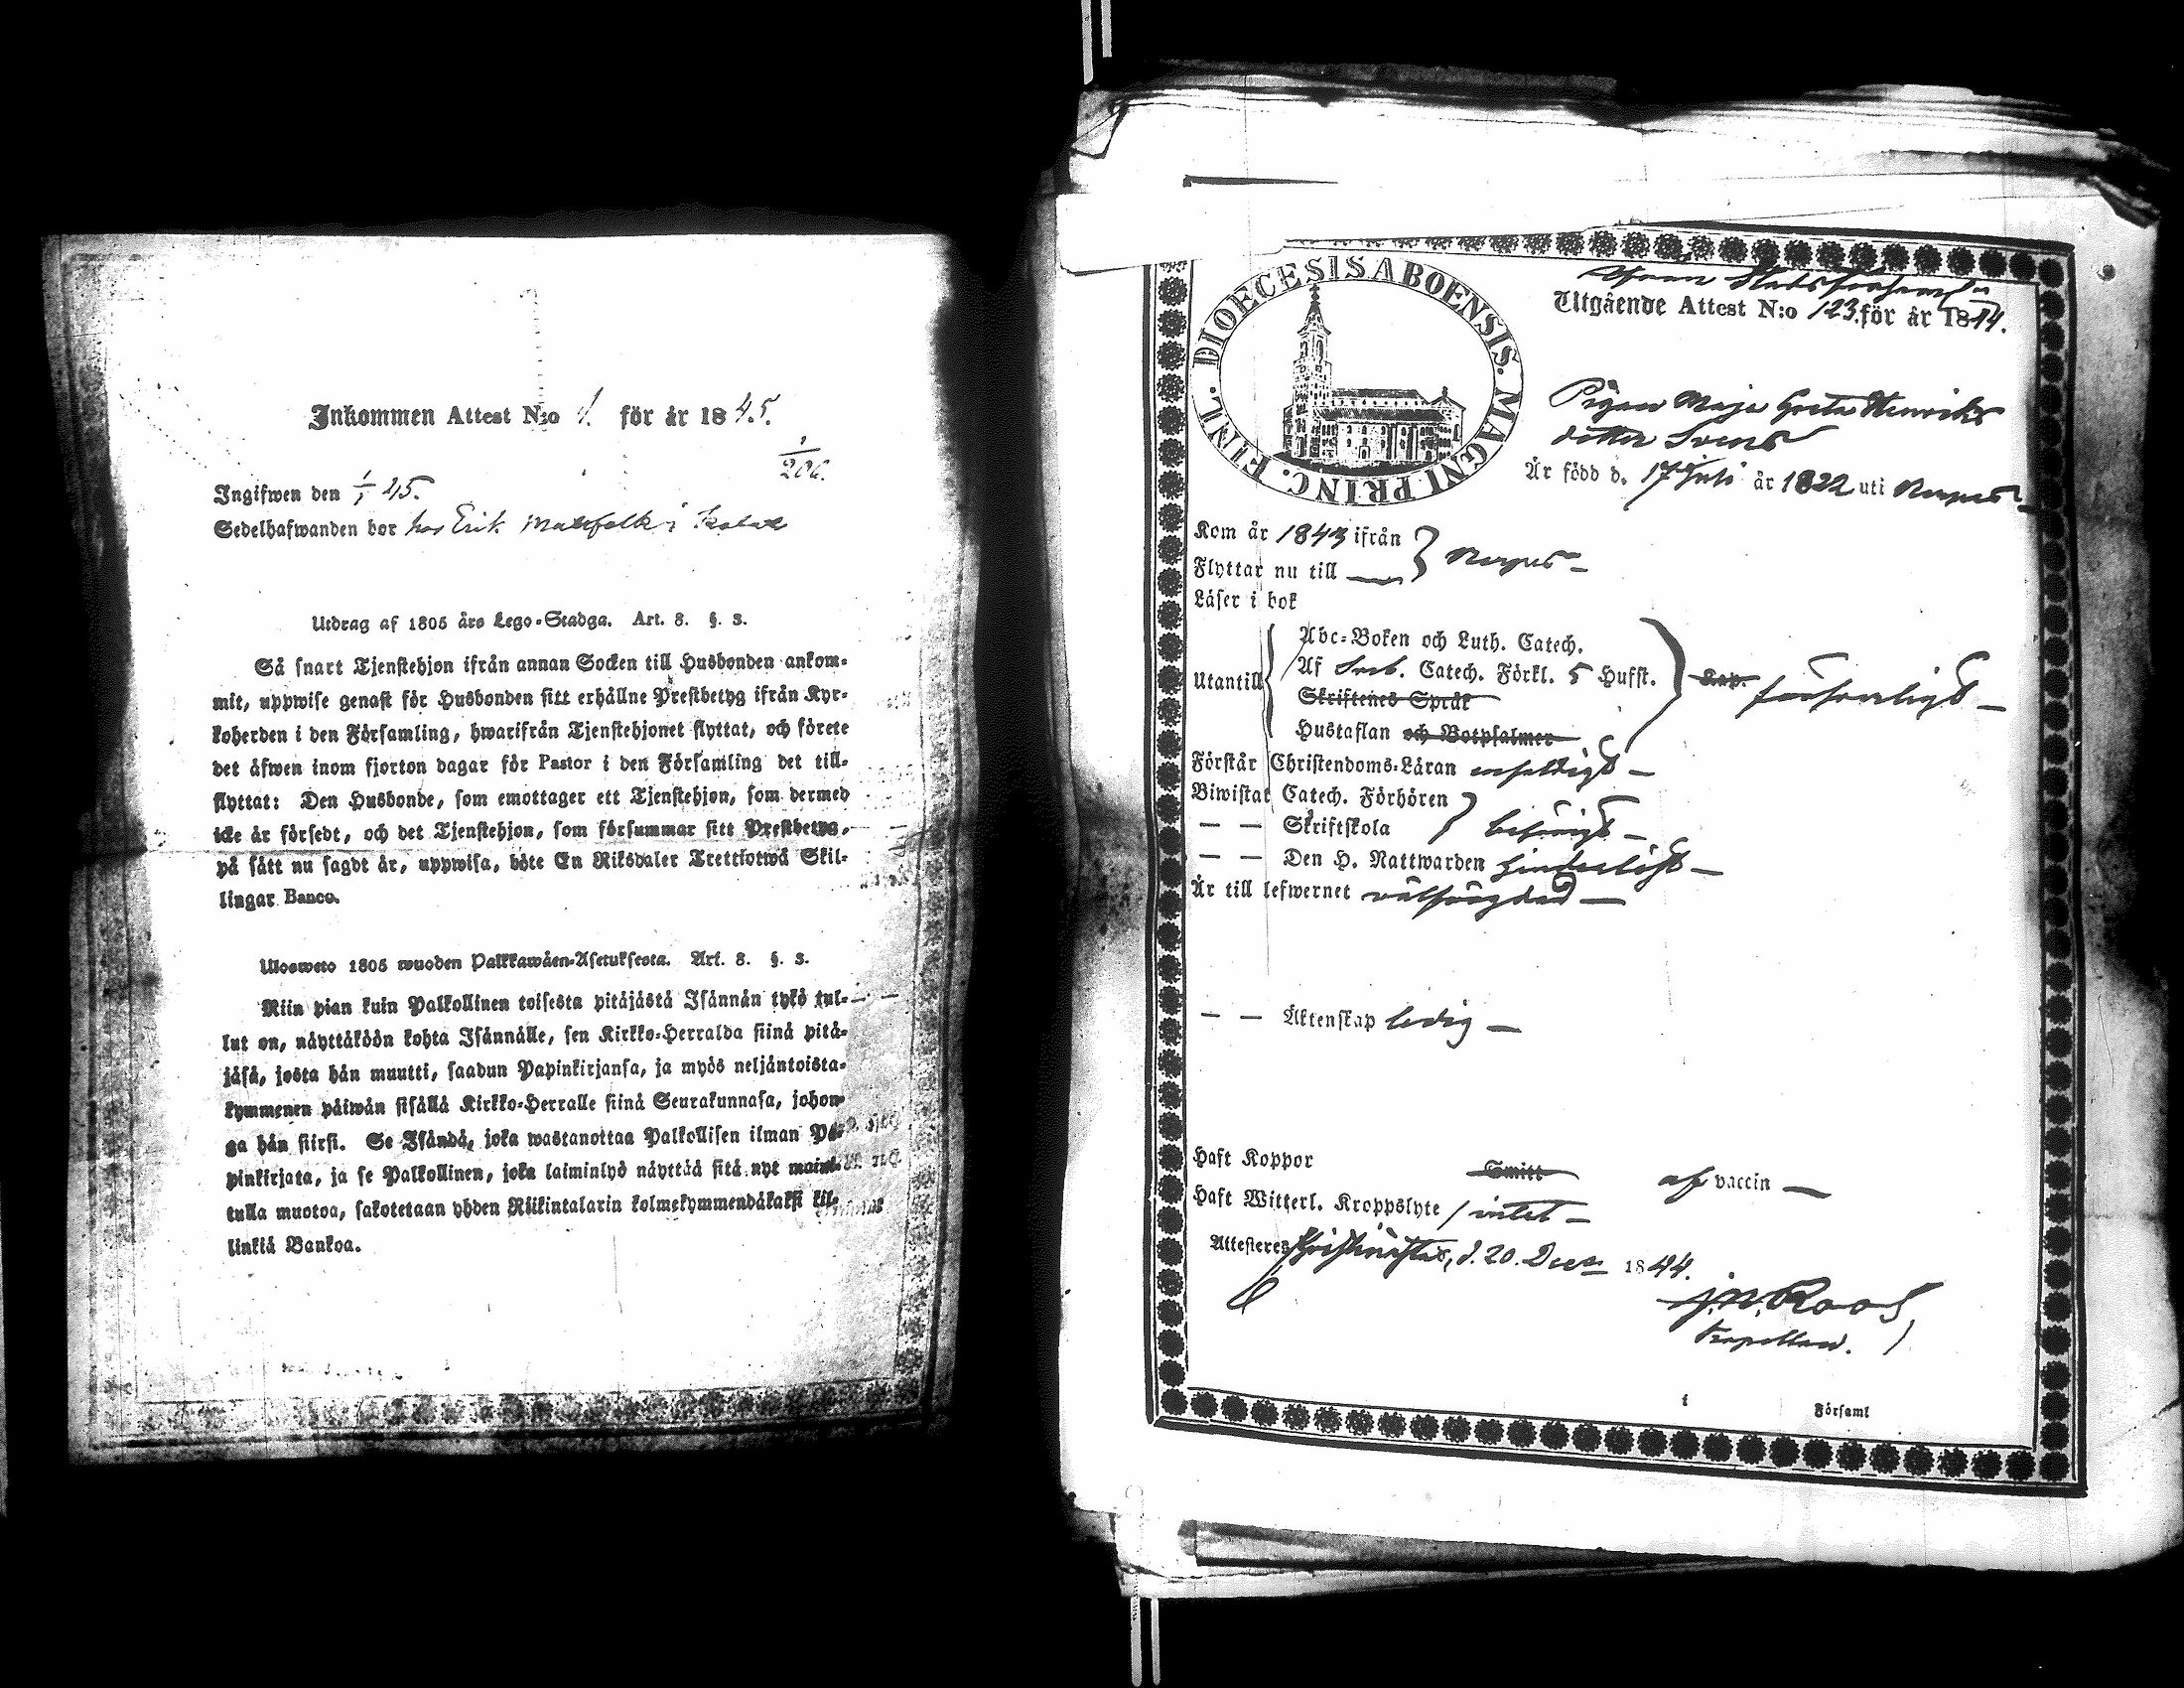 Inkommen Attest N:o 1. för år 1845.
1/200.
Ingifwen den 1/1 45.
Sedelhafwanden bor hos Erik i
Utdrag af 1805 års Lego-Stadga. Art. 8. §. 3.
Så snart Tjenstehjon ifrån annan Socken till Husbonden ankom-
mit, uppwise genast för Husbonden sitt erhållne Prestbetyg ifrån Kyr-
koherden i den Församling, hwarifrån Tjenstehjonet flyttat, och förete
det äfwen inom fjorton dagar för Pastor i den Församling det till-
flyttat: Den Husbonde, som emottager ett Tjenstehjon, som dermed
icke är försedt, och det Tjenstehjon, som försummar sitt Prestbetyg,
på sätt nu sagdt är, uppwisa, böte En Riksdaler Trettiotwå Skil-
lingar Banco.
Ulosweto 1805 wuoden Palkkawäen-Asetuksesta. Art. 8. §. 3.
Niin pian kuin Palkollinen toisesta pitäjästä Isännän tykö tul-
lut on, näyttäköön kohta Isännälle, sen Kirkko-Herralda siinä pitä-
jäsä, josta hän muutti, saadun Papinkirjansa, ja myös neljäntoista-
kymmenen päiwän sisällä Kirkko-Herralle siinä Seurakunnasa, johon-
ga hän siirsi. Se Isändä, joka wastanottaa Palkollisen ilman Pa-
pinkirjata, ja se Palkollinen, joka laiminlyö näyttää sitä nyt maini-
tulla muotoa, sakotetaan yhden Riikintalarin kolmekymmendäkaksi kil-
linkiä Bankoa.
DIOECESIS ABOENSIS. MAGNI PRINC. FINL.
Utgående Attest N:o 123. för år 1844.
Pigan Maja Greta Henriks
dotter Svens
Är född d. 17 Juli år 1822 uti Nerpes
Kom år 1843 ifrån
Flyttar nu till } Nerpes
Läser i bok
Utantill
Abc-Boken och Luth. Catech.
Af Sveb. Catech. Förkl. 5 Hufst.
Skriftenes Språk
Hustaflan och Botpsalmer
försvarligt
Förstår Christendoms-Läran enfaldigt
Biwistat Catech. Förhören
— — Skriftskola
behörigt
— — Den H. Nattwarden hinderlöst
Är till lefwernet välfrägdad
— — Äktenskap ledig
Haft Koppor Smitt af vaccin
Haft Witterl. Kroppslyte / intet
Attesteres Christinestad, d. 20. Decem 1844.
J. N. Roos
Kapellan.
i Församl